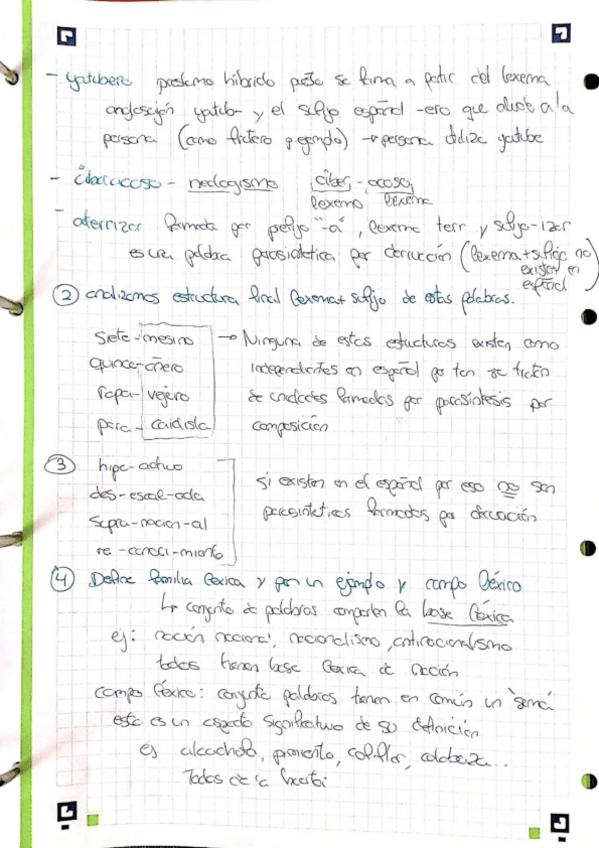 - youtubero préstamo híbrido puesto se forma a partir del lexema
anglosajón youtub- y el sufijo español -ero que alude a la
persona (como frutero p ejemplo) → persona utiliza youtube
- ciberacoso - neologismo ciber - acoso
lexema lexema
- aterrizar formada por prefijo "-a", lexema terr y sufijo -izar
es una palabra parasintética por derivación (lexema + sufijo no
existen en
español)
② analizamos estructura final lexema + sufijo de estas palabras.
siete - mesino → Ninguna de estas estructuras existen como
quince - añero independientes en español por tan se tratan
ropa - vejero de unidades formadas por parasíntesis por
para - caidista composición
③ hipe-activo
des-escal-ada si existen en el español por eso no son
supra-nacion-al parasintéticas formados por derivación
re-conoci-miento
④ Define familia léxica y pon un ejemplo y campo léxico
↳ conjunto de palabras comparten la base léxica
ej: nación nacional, nacionalismo, antinacionalismo
todos tienen base léxica de nación
campo léxico: conjunto palabras tienen en común un "sema"
este es un aspecto significativo de su definición
ej alcachofa, pimiento, coliflor, calabaza...
Todos de la